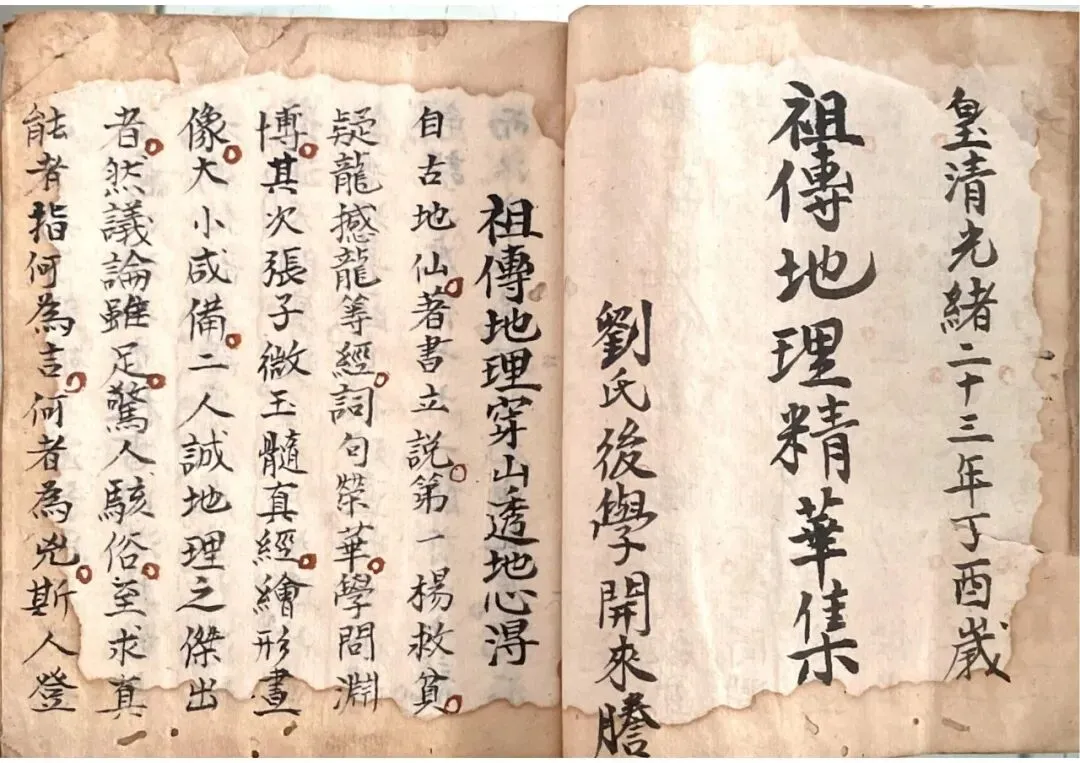 皇清光緒二十三年丁酉歲
祖傳地理精華集
劉氏後學開來謄
祖傳地理穿山透地心淂
自古地仙著書立說第一楊救貧
疑龍撼龍等經詞句榮華學問淵
博其次張子微玉髓真經繪形畫
像大小咸備二人誠地理之傑出
者然議論雖足驚人駭俗至求真
能者指何為吉何者為兇斯人登